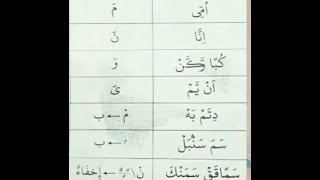 اُمِّى مَّ
اِنَّا نَّ
كُبًا وَّكَّنْ وَ
اَنْ يَّمْ ىَ
دِتَمْ بَهْ مْ ← ب
سَمَ سَنْۢبَلْ ← ب
سَمَاقَقْ سَمَنْكَ نْ ← إِخْفَاءٌ